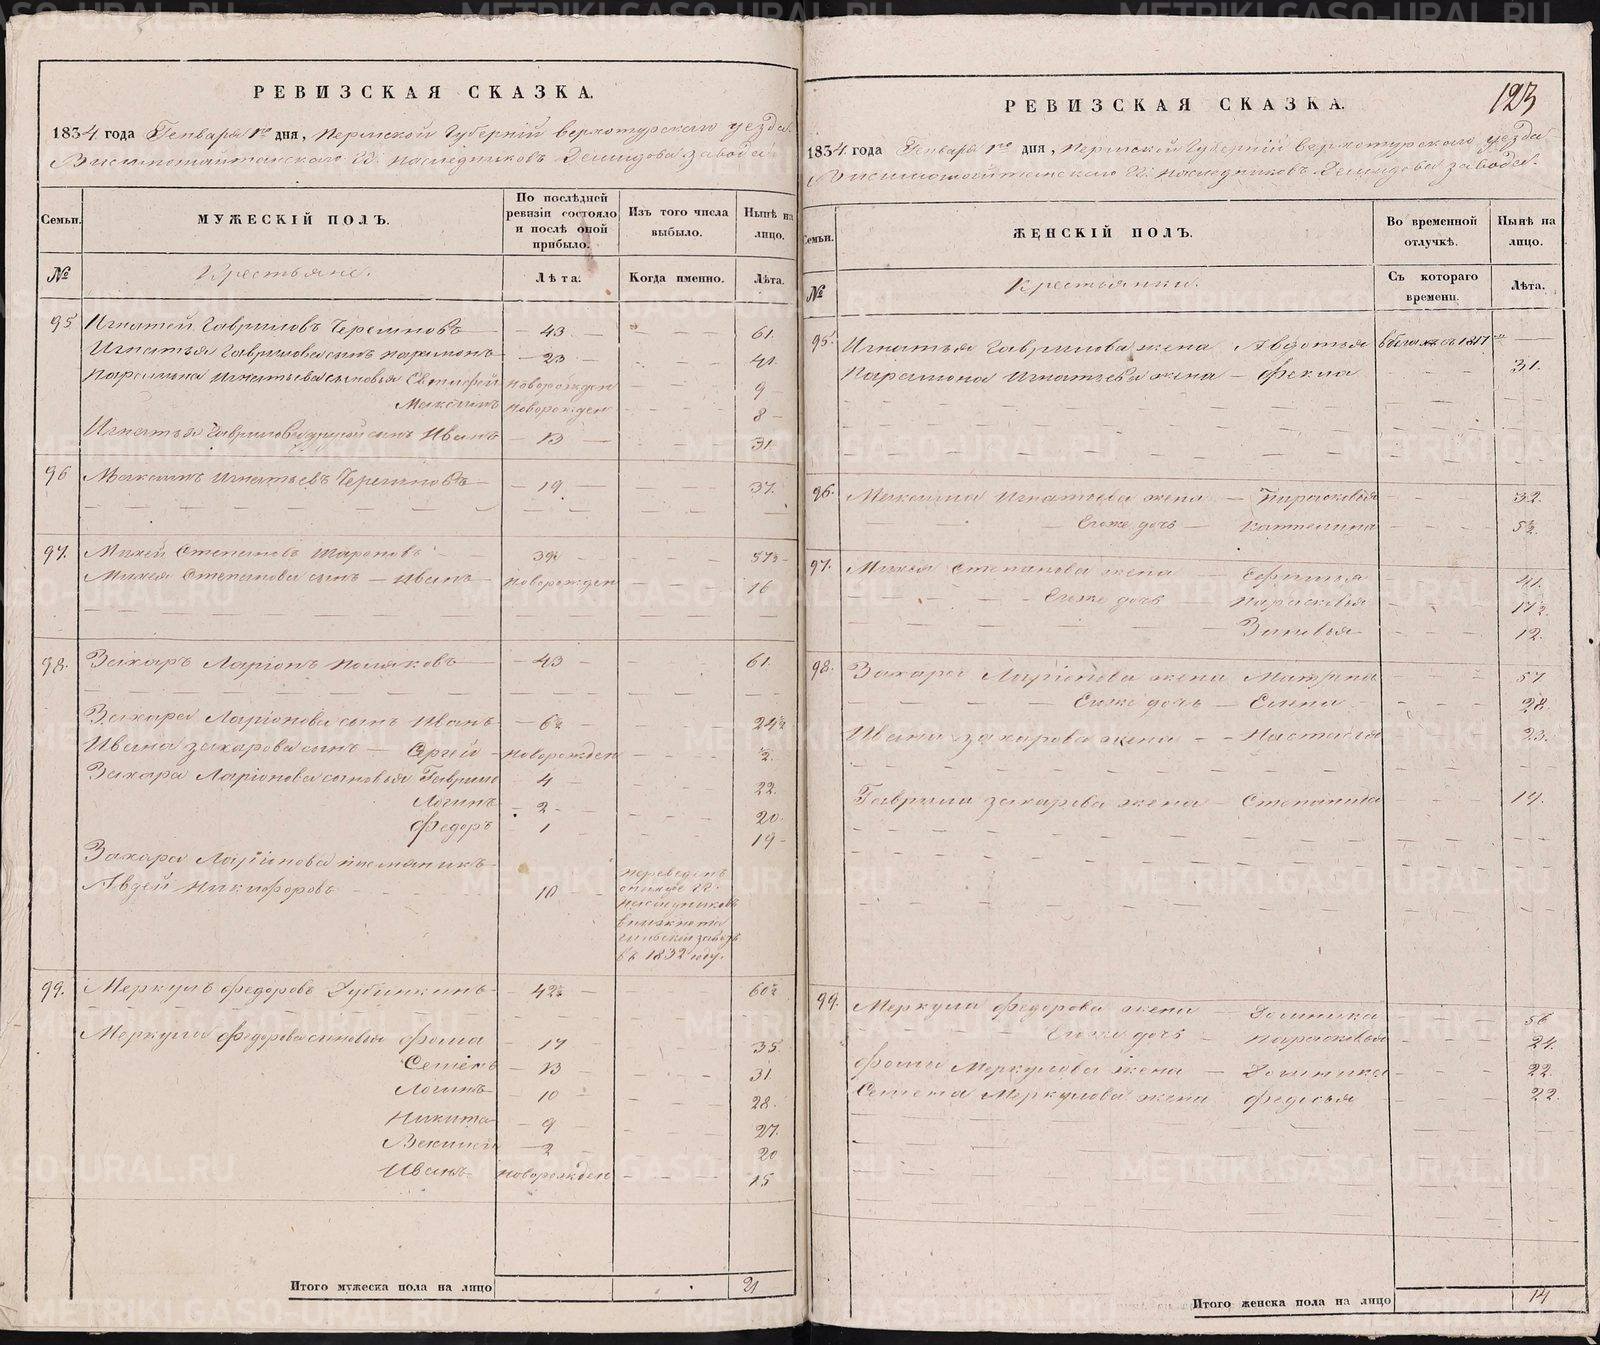 РЕВИЗСКАЯ СКАЗКА.
1834 года Генваря 1го дня, Пермской Губернiй верхотурскаго уезда
Висимошайтанскаго Гг. наследниковъ Демидова завода
Семьи.
МУЖЕСКIЙ ПОЛЪ.
По послѣдней ревизiи состояло и послѣ оной прибыло.
Изъ того числа выбыло.
Нынѣ на лицо.
№
Крестьяне.
Лѣта.
Когда именно.
Лѣта.
95 Игнатей Гавриловъ Черемновъ 43 61.
Игнатья Гаврилова сынъ парамонъ 23 41
Парамона Игнатьева сыновья новорожден 9
Максимъ новорожден 8
Игнатья Гаврилова другой сынъ Иванъ 13 31.
96 Максимъ Игнатьевъ Черемновъ 19 37.
97. Михей Степановъ Шароновъ 39½ 57½
Михея Степанова сынъ Иванъ новорожден 16
98. Захаръ Ларiонъ поляковъ 43 61.
Захара Ларiонова сынъ Иванъ 6½ 24½
Ивана захарова сынъ новорожден ½
Захара Ларiонова сыновья Гаврило 4 22.
Логинъ 2 20.
Федоръ 1 19
Захара Ларiонова племяникъ
Авдей Никифоровъ 10
переведенъ
Гг.
наследниковъ
в нижнета
гильской завод
въ 1832 году.
99. Меркулъ федоровъ Дубинкинъ 42½ 60½
Меркула федорова сыновья фома 17 35
Семенъ 13 31.
Логинъ 10 28.
Никита 9 27.
2 20
Иванъ новорожден 15
Итого мужеска пола на лицо 21
123
РЕВИЗСКАЯ СКАЗКА.
1834. года Генваря 1го дня, Пермской Губернiй верхотурскаго уезда
Висимошайтанскаго Гг. наследниковъ Демидова завода.
Семьи.
ЖЕНСКIЙ ПОЛЪ.
Во временной отлучкѣ.
Нынѣ на лицо.
№
Крестьянки.
Съ котораго времени.
Лѣта.
95. Игнатья Гаврилова жена Авдотья
Парамона Игнатьева жена Фекла 31.
96. Максима Игнатьева жена Парасковья 32.
Егоже дочь Катерина 5½.
97. Михея Степанова жена 41.
Егоже дочь Парасковья 17½.
Зиновья 12.
98. Захара Ларiонова жена Матрена 57
Егоже дочь Елена 28.
Ивана захарова жена Настасья 23.
Гаврила захарова жена Степанида 19.
99. Меркула федорова жена Домника 56
Егоже дочь Парасковья 24.
фомы Меркулова жена Домника 22.
Семена Меркулова жена федосья 22.
Итого женска пола на лицо 14
METRIKI.GASO-URAL.RU